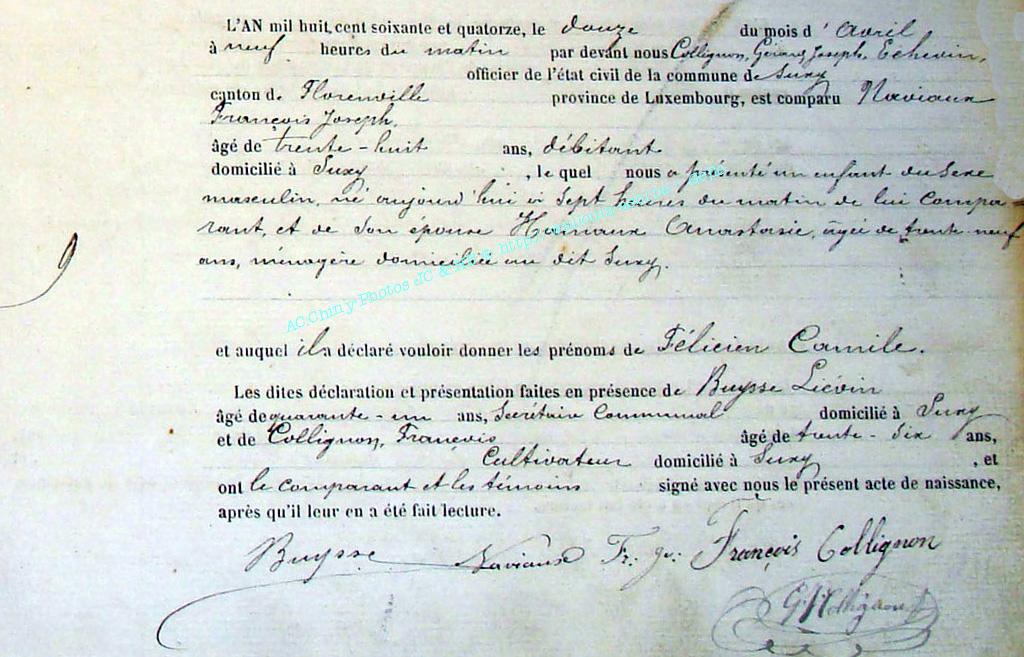 L'AN mil huit cent soixante et quatorze, le douze du mois d'Avril
à neuf heures du matin par devant nous Collignon, Gérard Joseph, Echevin,
officier de l'état civil de la commune de Suxy
canton de Florenville province de Luxembourg, est comparu Naviaux
François Joseph,
âgé de trente-huit ans, débitant
domicilié à Suxy, le quel nous a présenté un enfant du sexe
masculin, né aujourd'hui à sept heures du matin de lui compa-
rant, et de son épouse Anastasie, âgée de trente-neuf
ans, ménagère domiciliée au dit Suxy.
AC.Chiny Photos JC &
9
et auquel il a déclaré vouloir donner les prénoms de Félicien Camile.
Les dites déclaration et présentation faites en présence de Buysse Liévin
âgé de quarante-un ans, Secrétaire Communal domicilié à Suxy
et de Collignon, François âgé de trente-six ans,
Cultivateur domicilié à Suxy, et
ont le comparant et les témoins signé avec nous le présent acte de naissance,
après qu'il leur en a été fait lecture.
Buysse Naviaux Fr: Jh: François Collignon
G. J. Collignon